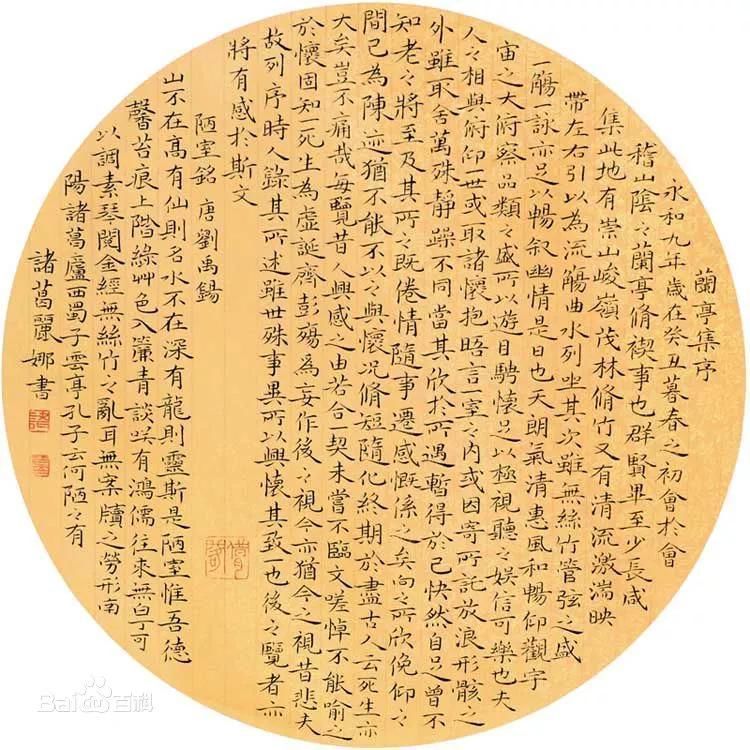 蘭亭集序
永和九年歲在癸丑暮春之初會於會
稽山陰之蘭亭脩禊事也群賢畢至少長咸
集此地有崇山峻嶺茂林脩竹又有清流激湍映
帶左右引以為流觴曲水列坐其次雖無絲竹管弦之盛
一觴一詠亦足以暢叙幽情是日也天朗氣清惠風和暢仰觀宇
宙之大俯察品類之盛所以遊目騁懷足以極視聽之娛信可樂也夫
人之相與俯仰一世或取諸懷抱晤言一室之內或因寄所託放浪形骸之
外雖取舍萬殊靜躁不同當其欣於所遇暫得於己快然自足曾不
知老之將至及其所之既倦情隨事遷感慨係之矣向之所欣俛仰之
間已為陳迹猶不能不以之興懷況脩短隨化終期於盡古人云死生亦
大矣豈不痛哉每覽昔人興感之由若合一契未嘗不臨文嗟悼不能喻之
於懷固知一死生為虛誕齊彭殤為妄作後之視今亦猶今之視昔悲夫
故列序時人錄其所述雖世殊事異所以興懷其致一也後之覽者亦
將有感於斯文
陋室銘 唐劉禹錫
山不在高有仙則名水不在深有龍則靈斯是陋室惟吾德
馨苔痕上階綠艸色入簾青談咲有鴻儒往來無白丁可
以調素琴閱金經無絲竹之亂耳無案牘之勞形南
陽諸葛廬西蜀子雲亭孔子云何陋之有
諸葛麗娜書
Bai百科